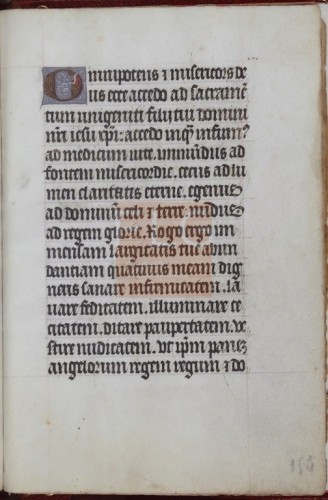 Omnipotens ⁊ misericors de
us ecce accedo ad sacramē
tum unigeniti filij tui domini
nr̄i iesu xp̄i: accedo inq̄ infirm᷒
ad medicum uite. immūdus ad
fontem misericordie. cecus ad lu
men claritatis eterne. egenus
ad dominū celi ⁊ terre. nudus
ad regem glorie. Rogo ergo im
mensam largitatis tue abun
dantiam quatinus meam dig
neris sanare infirmitatem. la
uare feditatem. illuminare ce
citatem. ditare paupertatem. ve
stire nuditatem. vt ip̄m panez
angelorum regem regum ⁊ do
154